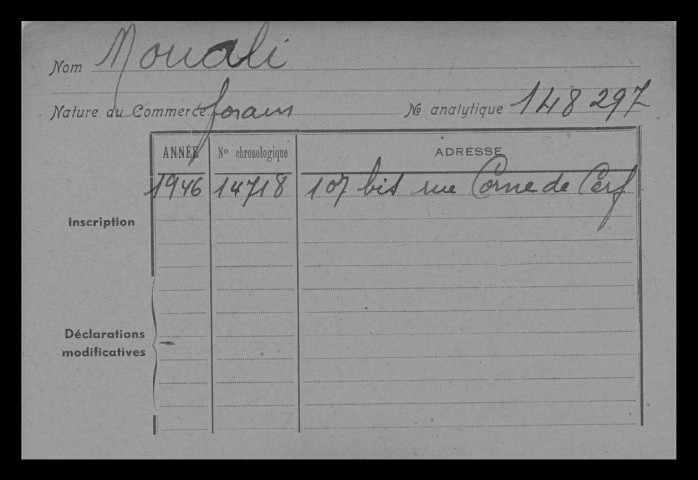 Nom Mouali
Nature du Commerce forain No analytique 148297
ANNÉE No chronologique ADRESSE
1946 14718 107 bis rue Corne de Cerf
inscription
Déclarations
modificatives